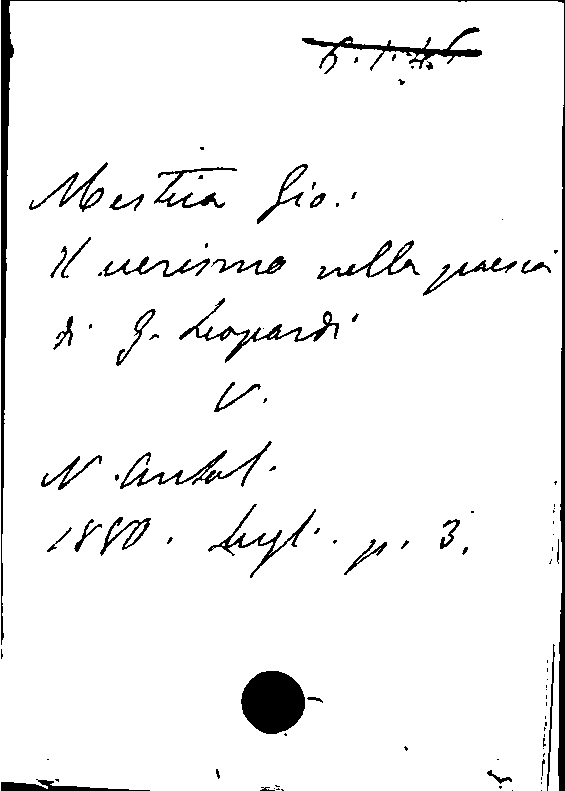 Mestica Gio.:
Il verismo nella poesia
di G. Leopardi
V.
N. Antol.
1880. Lugl. p. 3.